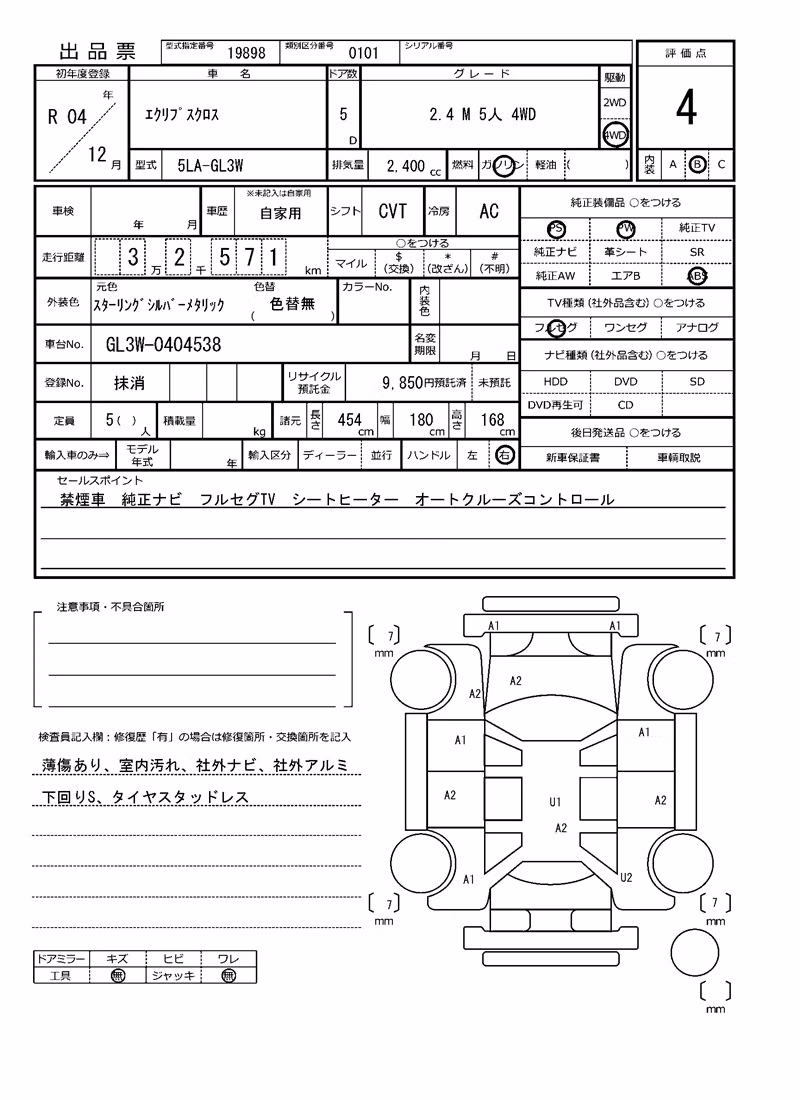 出品票 型式指定番号 19898 類別区分番号 0101 シリアル番号
評価点
初年度登録 車名 ドア数 グレード 駆動
R 04 年 12 月
エクリプスクロス 5 D 2.4 M 5人 4WD 2WD 4WD
4
型式 5LA-GL3W 排気量 2,400 cc 燃料 ガソリン 軽油 ( )
内装 A B C
車検 年 月 車歴 ※未記入は自家用 自家用 シフト CVT 冷房 AC
純正装備品 ○をつける
PS PW 純正TV
走行距離 3 万 2 千 5 7 1 km
○をつける
マイル $ (交換) * (改ざん) # (不明)
純正ナビ 革シート SR
純正AW エアB ABS
外装色 元色 スターリングシルバーメタリック 色替 ( 色替無 ) カラーNo. 内装色
TV種類(社外品含む) ○をつける
フルセグ ワンセグ アナログ
車台No. GL3W-0404538 名変期限 月 日
ナビ種類(社外品含む) ○をつける
HDD DVD SD
DVD再生可 CD
登録No. 抹消 リサイクル預託金 9,850円預託済 未預託
定員 5( )人 積載量 kg 諸元 長さ 454 cm 幅 180 cm 高さ 168 cm
後日発送品 ○をつける
新車保証書 車輌取説
輸入車のみ⇒ モデル年式 年 輸入区分 ディーラー 並行 ハンドル 左 右
セールスポイント
禁煙車 純正ナビ フルセグTV シートヒーター オートクルーズコントロール
注意事項・不具合箇所
検査員記入欄:修復歴「有」の場合は修復箇所・交換箇所を記入
薄傷あり、室内汚れ、社外ナビ、社外アルミ
下回りS、タイヤスタッドレス
ドアミラー キズ ヒビ ワレ
工具 無 ジャッキ 無
A1 A1
[ 7 ] mm [ 7 ] mm
A2
A2
A1 A1
A2 U1 A2
A2
A1 U2
[ 7 ] mm [ 7 ] mm
[ ] mm